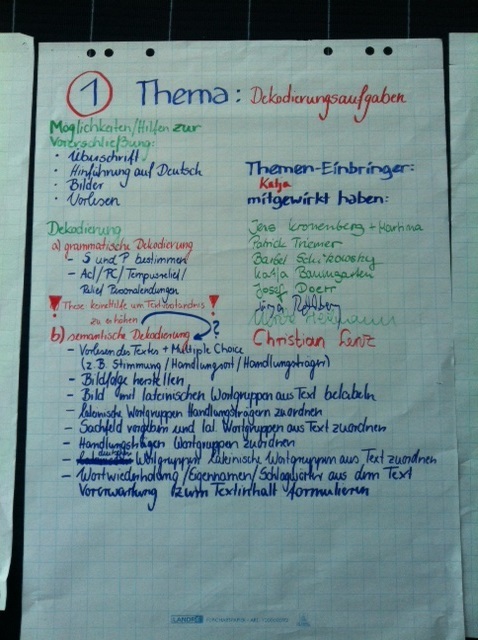 1 Thema: Dekodierungsaufgaben
Möglichkeiten/Hilfen zur
Vorerschließung:
· Überschrift
· Hinführung auf Deutsch
· Bilder
· Vorlesen
Themen-Einbringer:
Katja
mitgewirkt haben:
Jens Kronenberg + Martina
Patrick Triemer
Bärbel
Katja Baumgarten
Josef Doerr
Christian
Dekodierung
a) grammatische Dekodierung
– S und P bestimmen
– AcI/PC/Tempusrelief/
Relief Personalendungen
! These: keine Hilfe um Textverständnis !
zu erhöhen
?
b) semantische Dekodierung
– Vorlesen des Textes + Multiple Choice
(z.B. Stimmung/Handlungsort/Handlungsträger)
– Bildfolge herstellen
– Bild mit lateinischen Wortgruppen aus Text belabeln
– lateinische Wortgruppen Handlungsträgern zuordnen
– Sachfeld vorgeben und lat. Wortgruppen aus Text zuordnen
– Handlungsträgern Wortgruppen zuordnen
– deutschen Wortgruppen lateinische Wortgruppen aus Text zuordnen
– Wortwiederholung/Eigennamen/Schlagwörter aus dem Text
Vorerwartung zum Textinhalt formulieren
LANDRÉ